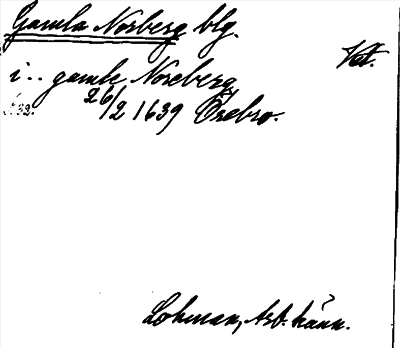 Gamla Norberg blg.
Vt.
i.. gamle Noreberg
26/2 1639 Örebro.
32.
Lohman, Arb. känn.